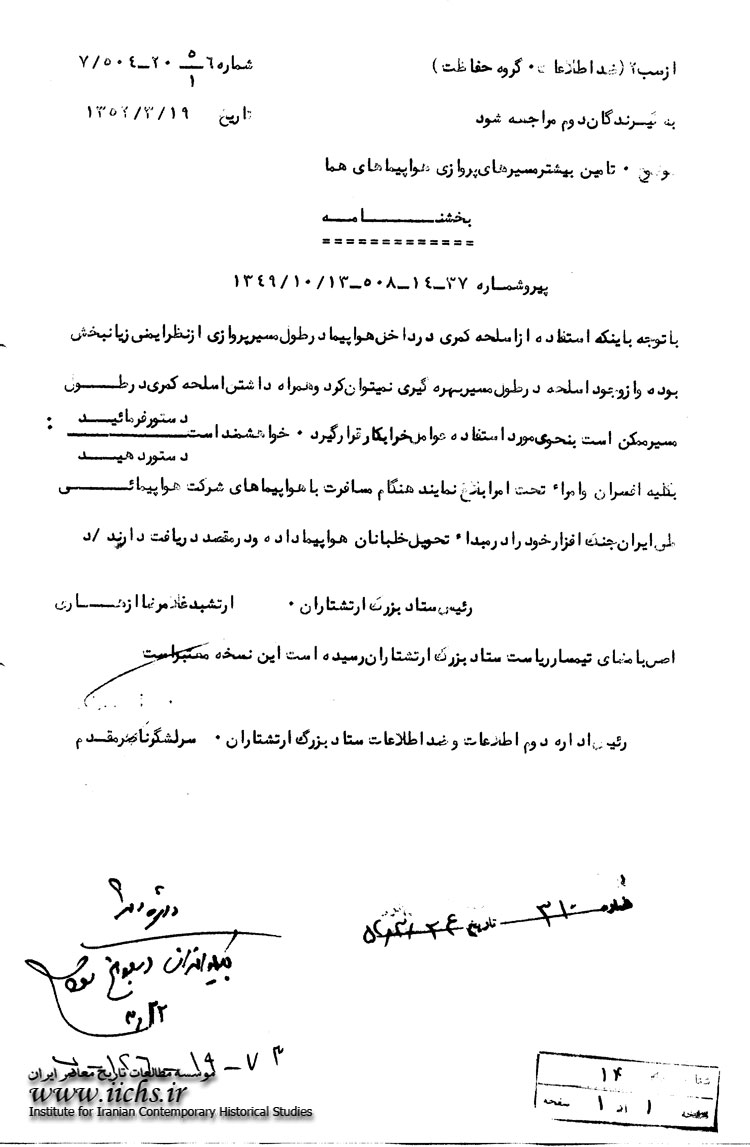 ازسب۲ (ضد اطلاعات ۰ گروه حفاظت)
شماره ۷/۵۰۴-۲۰-۵/۱-۶
به گیرندگان دوم مراجعه شود
تاریخ ۱۳۵۲/۳/۱۹
۰ تامین بیشتر مسیرهای پروازی هواپیماهای هما
بخشنـــــــامــه
=============
پیرو شماره ۳۷-۱۴-۵۰۸-۱۳۴۹/۱۰/۱۳
با توجه باینکه استفاده از اسلحه کمری در داخل هواپیما در طول مسیر پروازی از نظر ایمنی زیانبخش
بوده و از وجود اسلحه در طول مسیر بهره گیری نمیتوان کرد و همراه داشتن اسلحه کمری در طـــول
مسیر ممکن است بنحوی مورد استفاده عوامل خرابکار قرار گیرد ۰ خواهشمند است دستور فرمائیــد / دستور دهیــد :
بکلیه افسران و امراء تحت امر ابلاغ نمایند هنگام مسافرت با هواپیماهای شرکت هواپیمائـــی
ملی ایران جنگ افزار خود را در مبداء تحویل خلبانان هواپیما داده و در مقصد دریافت دارند /د
رئیس ستاد بزرگ ارتشتاران ۰ ارتشبد غلامرضا ازهــاری
اصل بامضای تیمسار ریاست ستاد بزرگ ارتشتاران رسیده است این نسخه معتبر است
رئیس اداره دوم اطلاعات و ضد اطلاعات ستاد بزرگ ارتشتاران ۰ سرلشگر ناصر مقدم
شماره ۳۱۰ تاریخ
۱۴
صفحه ۱ از ۱ صفحه
موسسه مطالعات تاریخ معاصر ایران
www.iichs.ir
Institute for Iranian Contemporary Historical Studies